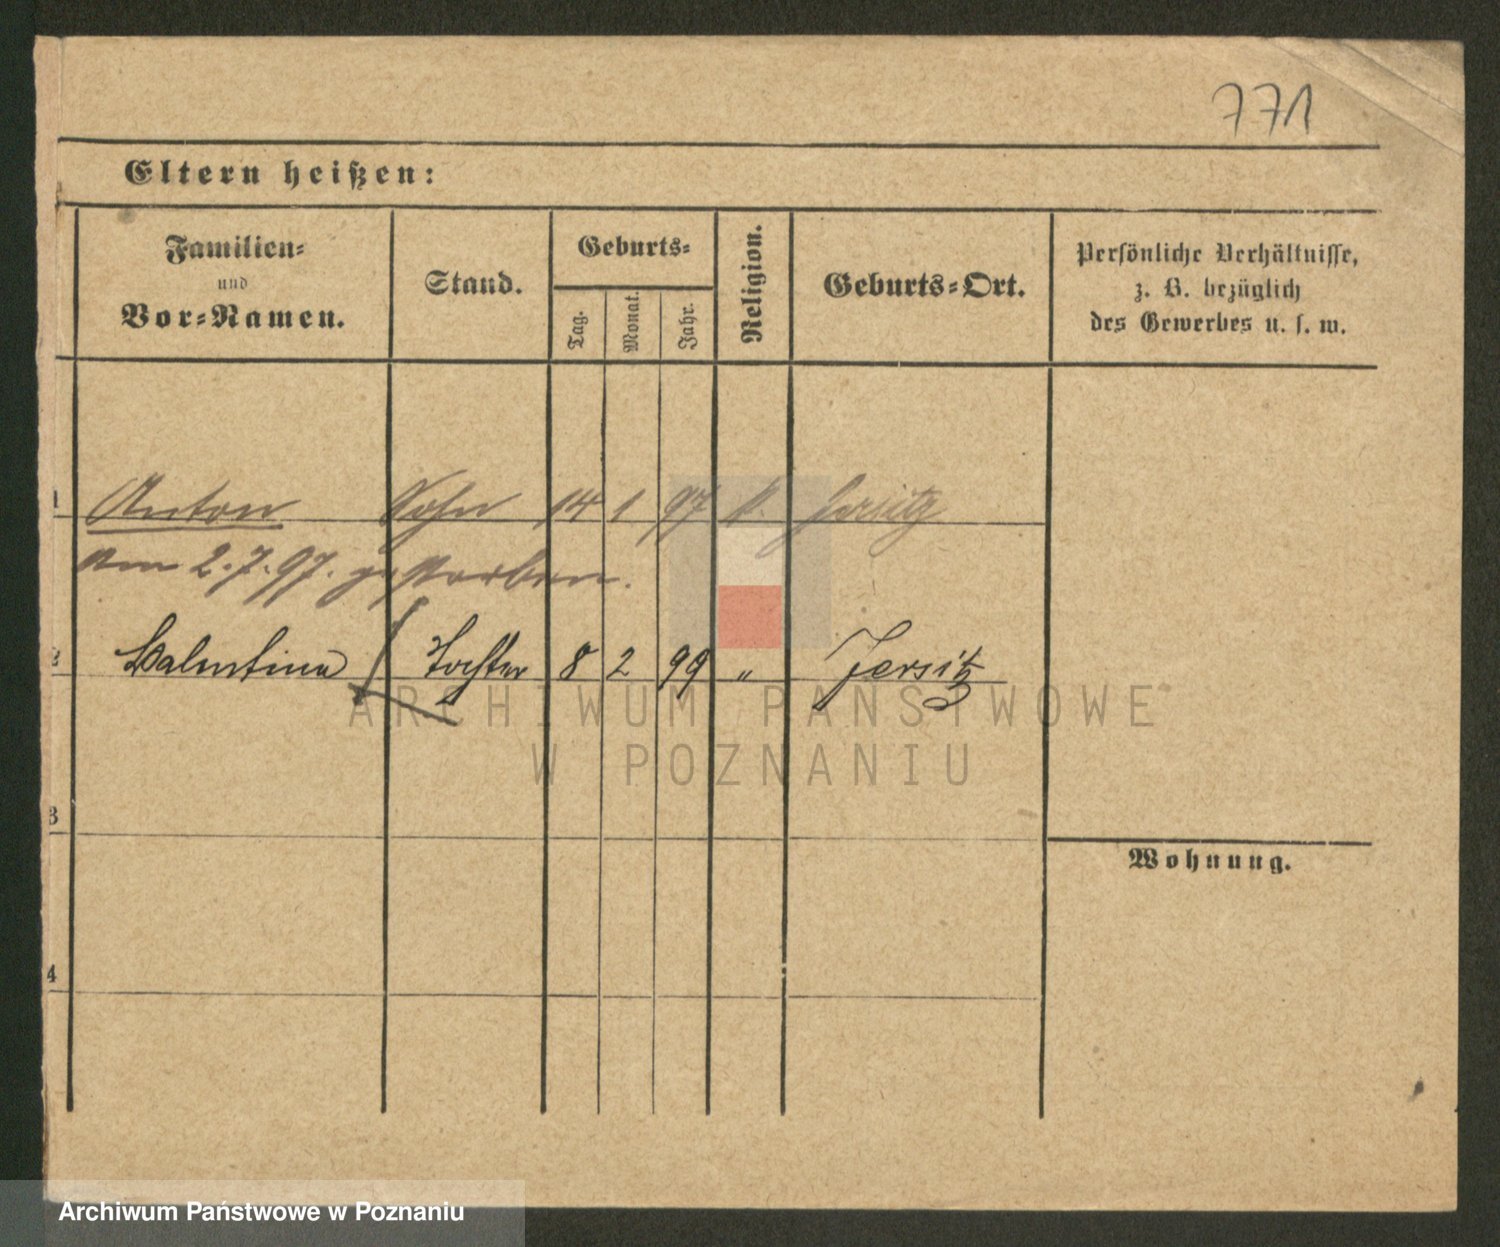 771
Eltern heißen:
Familien- und Vor-Namen.
Stand.
Geburts-
Tag.
Monat.
Jahr.
Religion.
Geburts-Ort.
Persönliche Verhältnisse,
z. B. bezüglich
des Gewerbes u. s. w.
1 Anton Sohn 14 1 97 k. Jersitz
Am 2.7.97. gestorben.
2 Valentina Tochter 8 2 99 " Jersitz
ARCHIWUM PAŃSTWOWE
W POZNANIU
3
Wohnung.
4
Archiwum Państwowe w Poznaniu